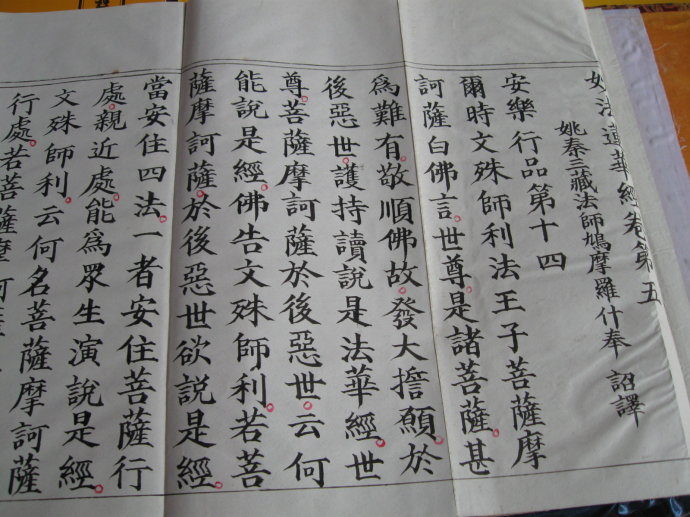 妙法蓮華經卷第五
姚秦三藏法師鳩摩羅什奉 詔譯
安樂行品第十四
爾時文殊師利法王子菩薩摩
訶薩白佛言。世尊。是諸菩薩。甚
為難有。敬順佛故。發大擔願。於
後惡世。護持讀說是法華經。世
尊。菩薩摩訶薩於後惡世。云何
能說是經。佛告文殊師利。若菩
薩摩訶薩。於後惡世欲說是經。
當安住四法。一者安住菩薩行
處。親近處。能為眾生演說是經。
文殊師利。云何名菩薩摩訶薩
行處。若菩薩摩訶薩